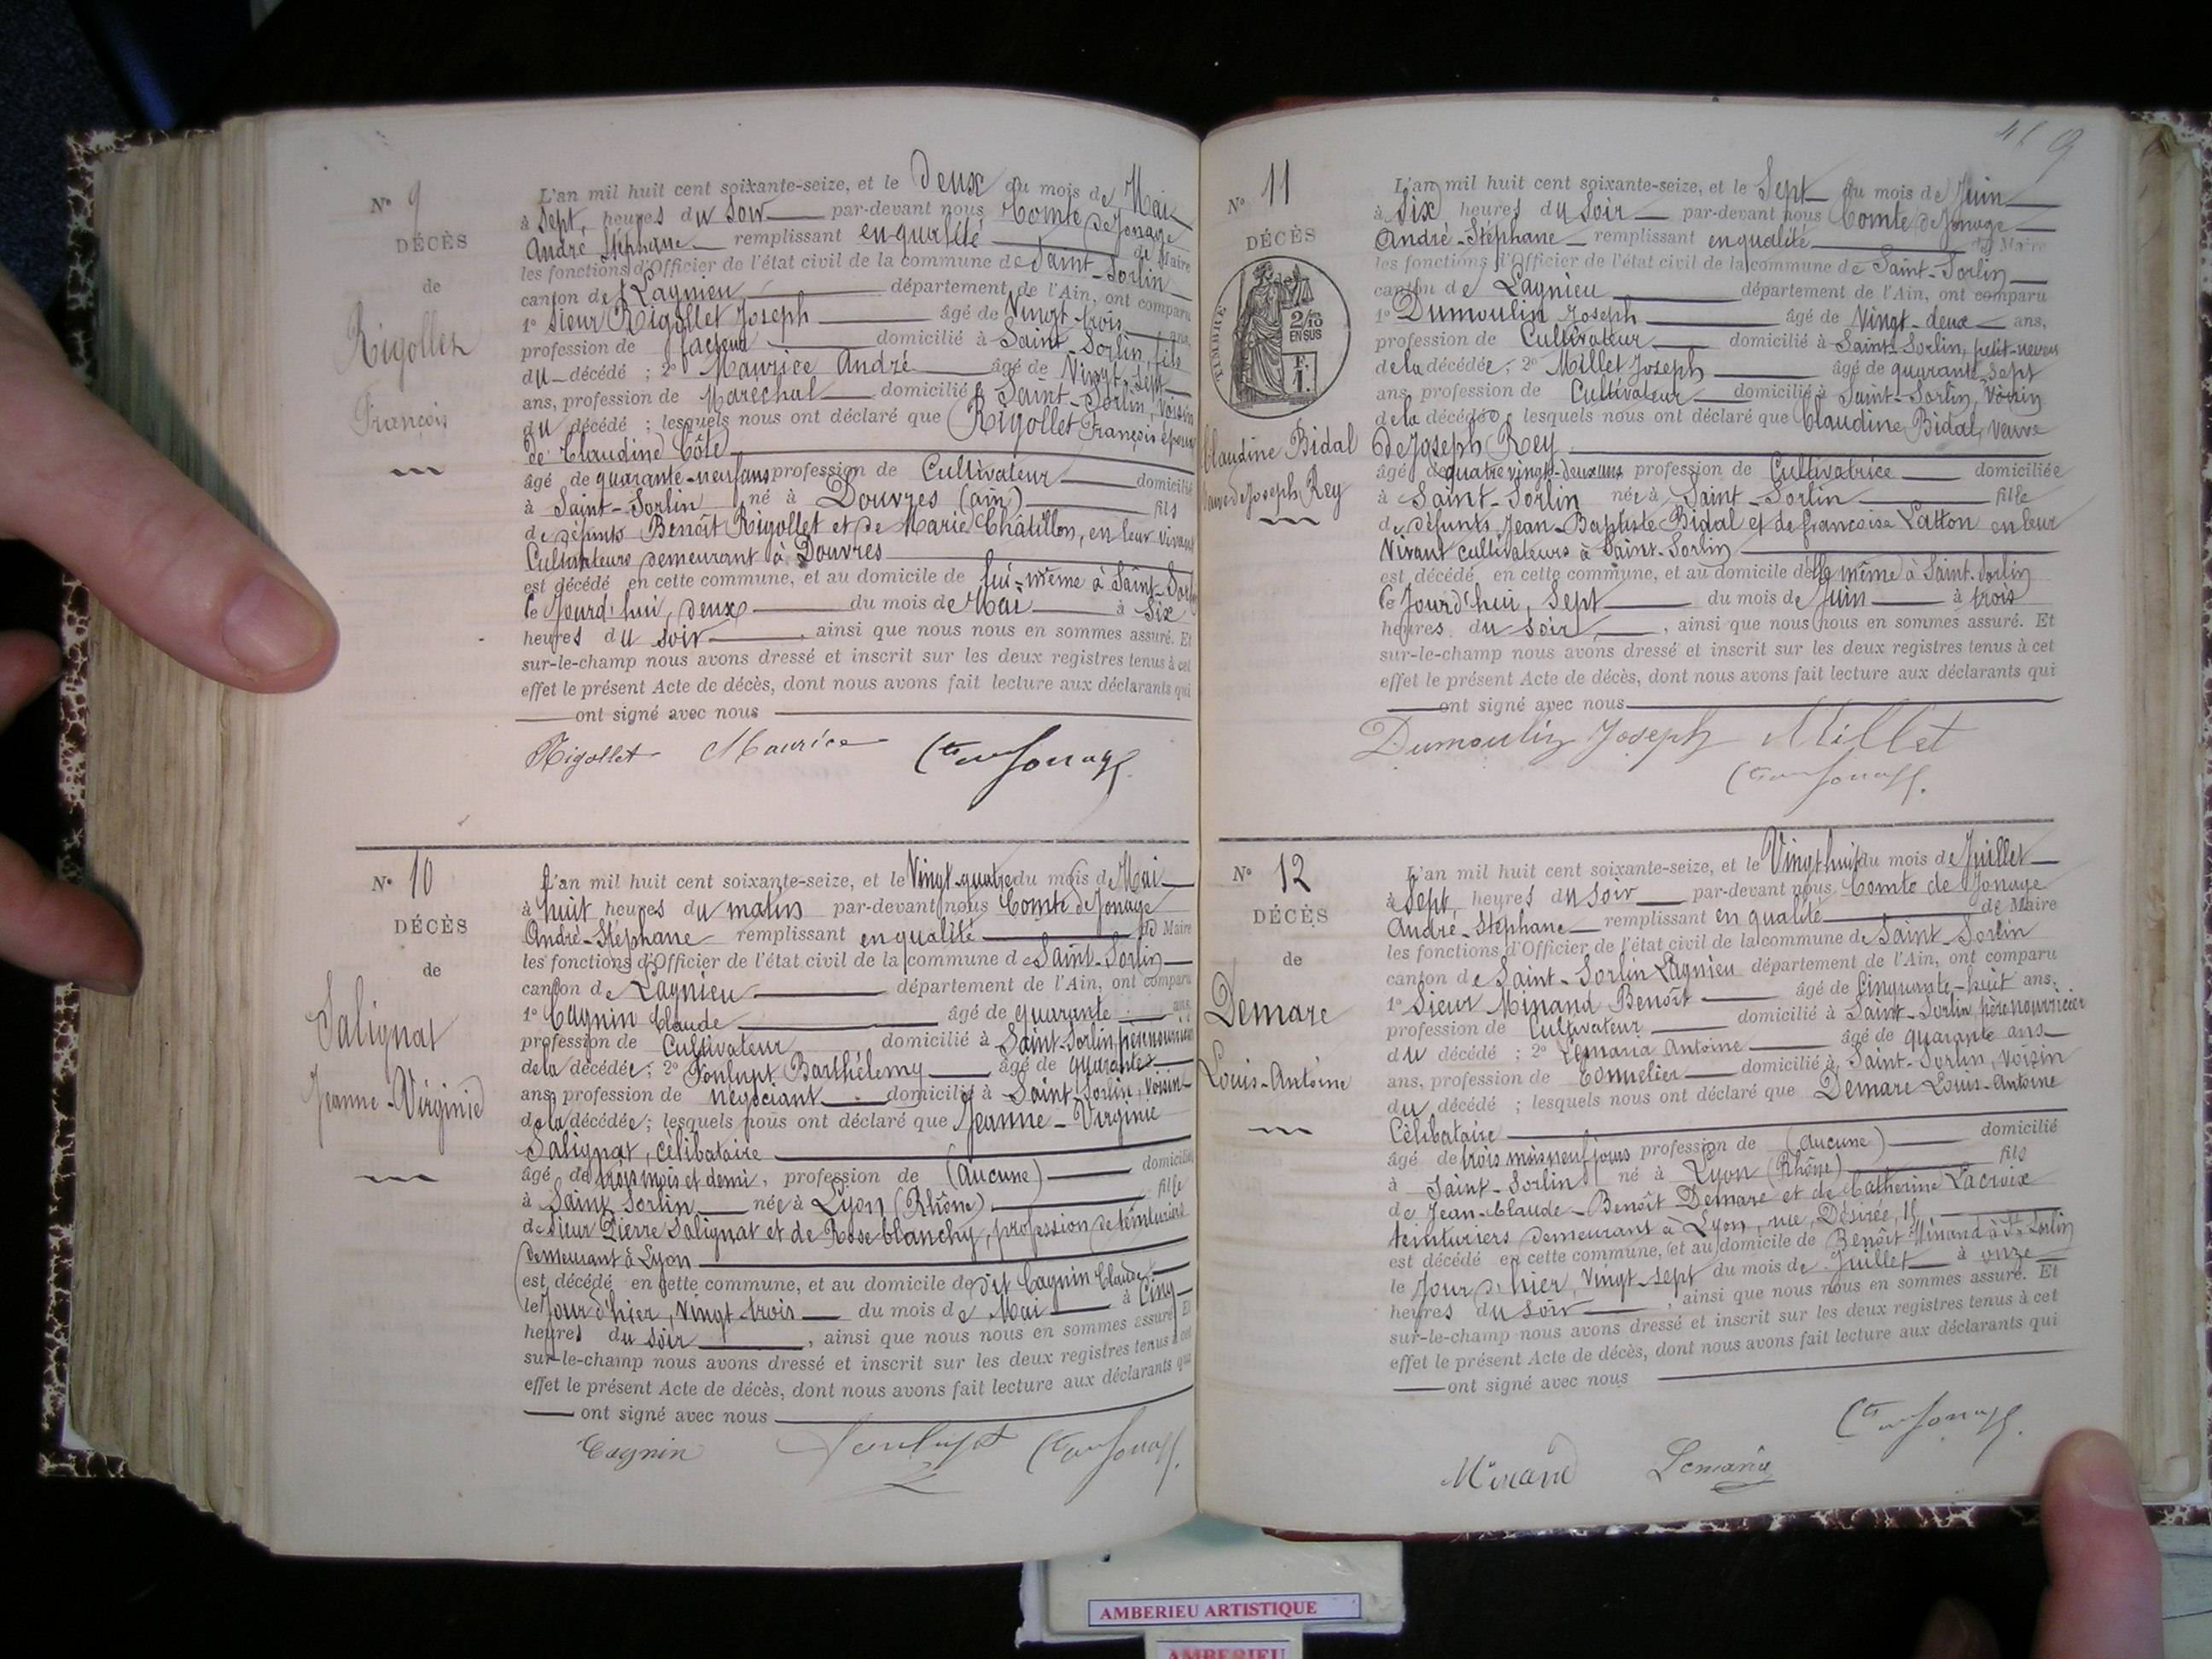 N° 9
DÉCÈS
de
Rigollet
François
L'an mil huit cent soixante-seize, et le Deux du mois de Mai
à Sept heures du Soir par-devant nous Comte de Jonage
André Stéphane remplissant en qualité de Maire
les fonctions d'Officier de l'état civil de la commune de Saint-Sorlin
canton de Lagnieu département de l'Ain, ont comparu
1° Sieur Rigollet Joseph âgé de Vingt-trois ans,
profession de facteur domicilié à Saint-Sorlin, fils
du décédé ; 2° Maurice André âgé de Vingt-Sept
ans, profession de Maréchal domicilié à Saint-Sorlin, Voisin
du décédé ; lesquels nous ont déclaré que Rigollet François époux
de Claudine Côte
âgé de quarante-neuf ans profession de Cultivateur domicilié
à Saint-Sorlin né à Douvres (ain) fils
de défunts Benoît Rigollet et de Marie Châtillon, en leur vivant
Cultivateurs demeurant à Douvres
est décédé en cette commune, et au domicile de lui-même à Saint-Sorlin
le Jourd'hui, deux du mois de Mai à Six
heures du soir, ainsi que nous nous en sommes assuré. Et
sur-le-champ nous avons dressé et inscrit sur les deux registres tenus à cet
effet le présent Acte de décès, dont nous avons fait lecture aux déclarants qui
ont signé avec nous
Rigollet Maurice Cte de Jonage
N° 10
DÉCÈS
de
Salignat
Jeanne-Virginie
L'an mil huit cent soixante-seize, et le Vingt-quatre du mois de Mai
à huit heures du matin par-devant nous Comte de Jonage
André-Stéphane remplissant en qualité de Maire
les fonctions d'Officier de l'état civil de la commune de Saint-Sorlin
canton de Lagnieu département de l'Ain, ont comparu
1° Cagnin Claude âgé de quarante ans,
profession de Cultivateur domicilié à Saint-Sorlin, père nourricier
de la décédée ; 2° Foulupt Barthélemy âgé de quarante
ans, profession de négociant domicilié à Saint-Sorlin, voisin
de la décédée ; lesquels nous ont déclaré que Jeanne-Virginie
Salignat, célibataire
âgé de trois mois et demi, profession de (aucune) domicilié
à Saint Sorlin née à Lyon (Rhône) fille
de Sieur Pierre Salignat et de Rose blanchy, profession de teinturiers
demeurant à Lyon
est décédé en cette commune, et au domicile de dit Cagnin Claude
le Jour d'hier, Vingt-trois du mois de Mai à Cinq
heures du soir, ainsi que nous nous en sommes assuré. Et
sur-le-champ nous avons dressé et inscrit sur les deux registres tenus à cet
effet le présent Acte de décès, dont nous avons fait lecture aux déclarants qui
ont signé avec nous
Cagnin Foulupt Cte de Jonage
N° 11
DÉCÈS
TIMBRE
2/10
EN SUS
F.
1.
Claudine Bidal
veuve de Joseph Rey
L'an mil huit cent soixante-seize, et le Sept du mois de Juin
à Six heures du Soir par-devant nous Comte de Jonage
André-Stéphane remplissant en qualité de Maire
les fonctions d'Officier de l'état civil de la commune de Saint-Sorlin
canton de Lagnieu département de l'Ain, ont comparu
1° Dumoulin Joseph âgé de Vingt-deux ans,
profession de Cultivateur domicilié à Saint-Sorlin, petit-neveu
de la décédée ; 2° Millet Joseph âgé de quarante-sept
ans, profession de Cultivateur domicilié à Saint-Sorlin, Voisin
de la décédée ; lesquels nous ont déclaré que Claudine Bidal, veuve
de Joseph Rey
âgé de quatre vingt-deux ans profession de Cultivatrice domiciliée
à Saint-Sorlin née à Saint-Sorlin fille
de défunts Jean-Baptiste Bidal et de francoise Latton en leur
Vivant cultivateurs à Saint-Sorlin
est décédé en cette commune, et au domicile d'elle même à Saint-Sorlin
le Jourd'hui, Sept du mois de Juin à trois
heures du Soir, ainsi que nous nous en sommes assuré. Et
sur-le-champ nous avons dressé et inscrit sur les deux registres tenus à cet
effet le présent Acte de décès, dont nous avons fait lecture aux déclarants qui
ont signé avec nous
Dumoulin Joseph Millet
Cte de Jonage
N° 12
DÉCÈS
de
Demare
Louis-Antoine
L'an mil huit cent soixante-seize, et le Vingt huit du mois de Juillet
à Sept heures du soir par-devant nous Comte de Jonage
André-Stéphane remplissant en qualité de Maire
les fonctions d'Officier de l'état civil de la commune de Saint-Sorlin
canton de Saint-Sorlin Lagnieu département de l'Ain, ont comparu
1° Sieur Minand Benoît âgé de Cinquante-huit ans,
profession de Cultivateur domicilié à Saint-Sorlin, père nourricier
du décédé ; 2° Lemaria Antoine âgé de quarante ans
ans, profession de tonnelier domicilié à Saint-Sorlin, voisin
du décédé ; lesquels nous ont déclaré que Demare Louis-Antoine
Célibataire
âgé de trois mois neuf jours profession de (aucune) domicilié
à Saint-Sorlin né à Lyon (Rhône) fils
de Jean-Claude-Benoît Demare et de Catherine Lacroix
teinturiers demeurant à Lyon, rue, Désirée,
est décédé en cette commune, et au domicile de Benoît Minand à St Sorlin
le Jour d'hier, Vingt-sept du mois de Juillet à onze
heures du soir, ainsi que nous nous en sommes assuré. Et
sur-le-champ nous avons dressé et inscrit sur les deux registres tenus à cet
effet le présent Acte de décès, dont nous avons fait lecture aux déclarants qui
ont signé avec nous
Cte de Jonage
Minand Lemaria
AMBERIEU ARTISTIQUE
AMBERIEU